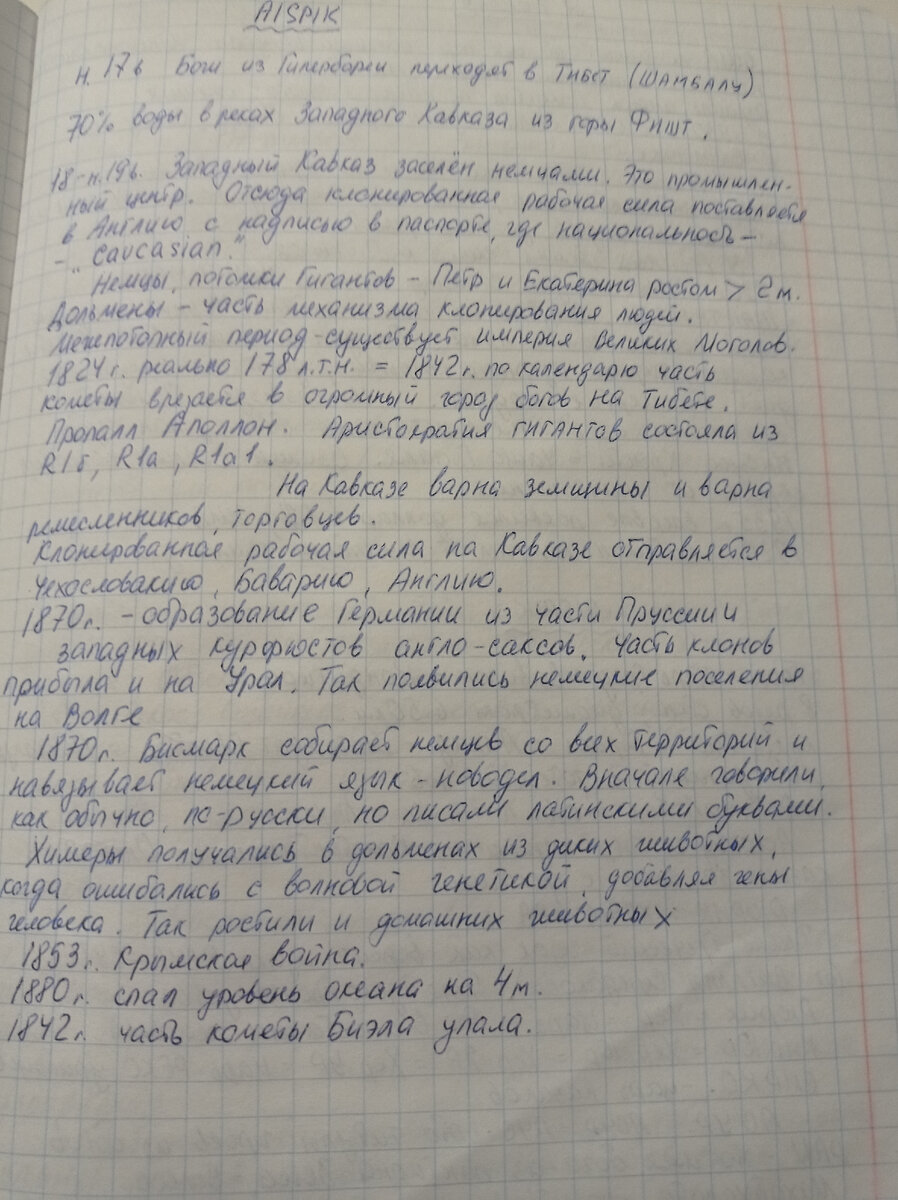 AISPIK
н. 17 в Боги из Гипербореи переходят в Тибет (ШАМБАЛУ)
70% воды в реках Западного Кавказа из горы Фишт.
18-н.19в. Западный Кавказ заселён немцами. Это промышлен-
ный центр. Отсюда клонированная рабочая сила поставляется
в Англию с надписью в паспорте, где национальность –
– "caucasian."
Немцы, потомки Гигантов – Петр и Екатерина ростом > 2 м.
Дольмены – часть механизма клонирования людей.
Межпотопный период – существует империя Великих Моголов.
1824 г. реально 178 л.т.н. = 1842 г. по календарю часть
кометы врезается в огромный город богов на Тибете.
Пропалл Аполлон. Аристократия гигантов состояла из
R1б, R1а, R1а1.
На Кавказе варна земщины и варна
ремесленников, торговцев.
Клонированная рабочая сила на Кавказе отправляется в
Чехословакию, Баварию, Англию.
1870 г. – образование Германии из части Пруссии и
западных курфюстов англо-саксов. Часть клонов
прибыла и на Урал. Так появились немецкие поселения
на Волге
1870 г. Бисмарк собирает немцев со всех территорий и
навязывает немецкий язык – новодел. Вначале говорили,
как обычно, по-русски, но писали латинскими буквами.
Химеры получались в дольменах из диких животных,
когда ошибались с волновой генетикой, добавляя гены
человека. Так ростили и домашних животных
1853 г. Крымская война.
1880 г. спал уровень океана на 4 м.
1842 г. часть кометы Биэла упала.